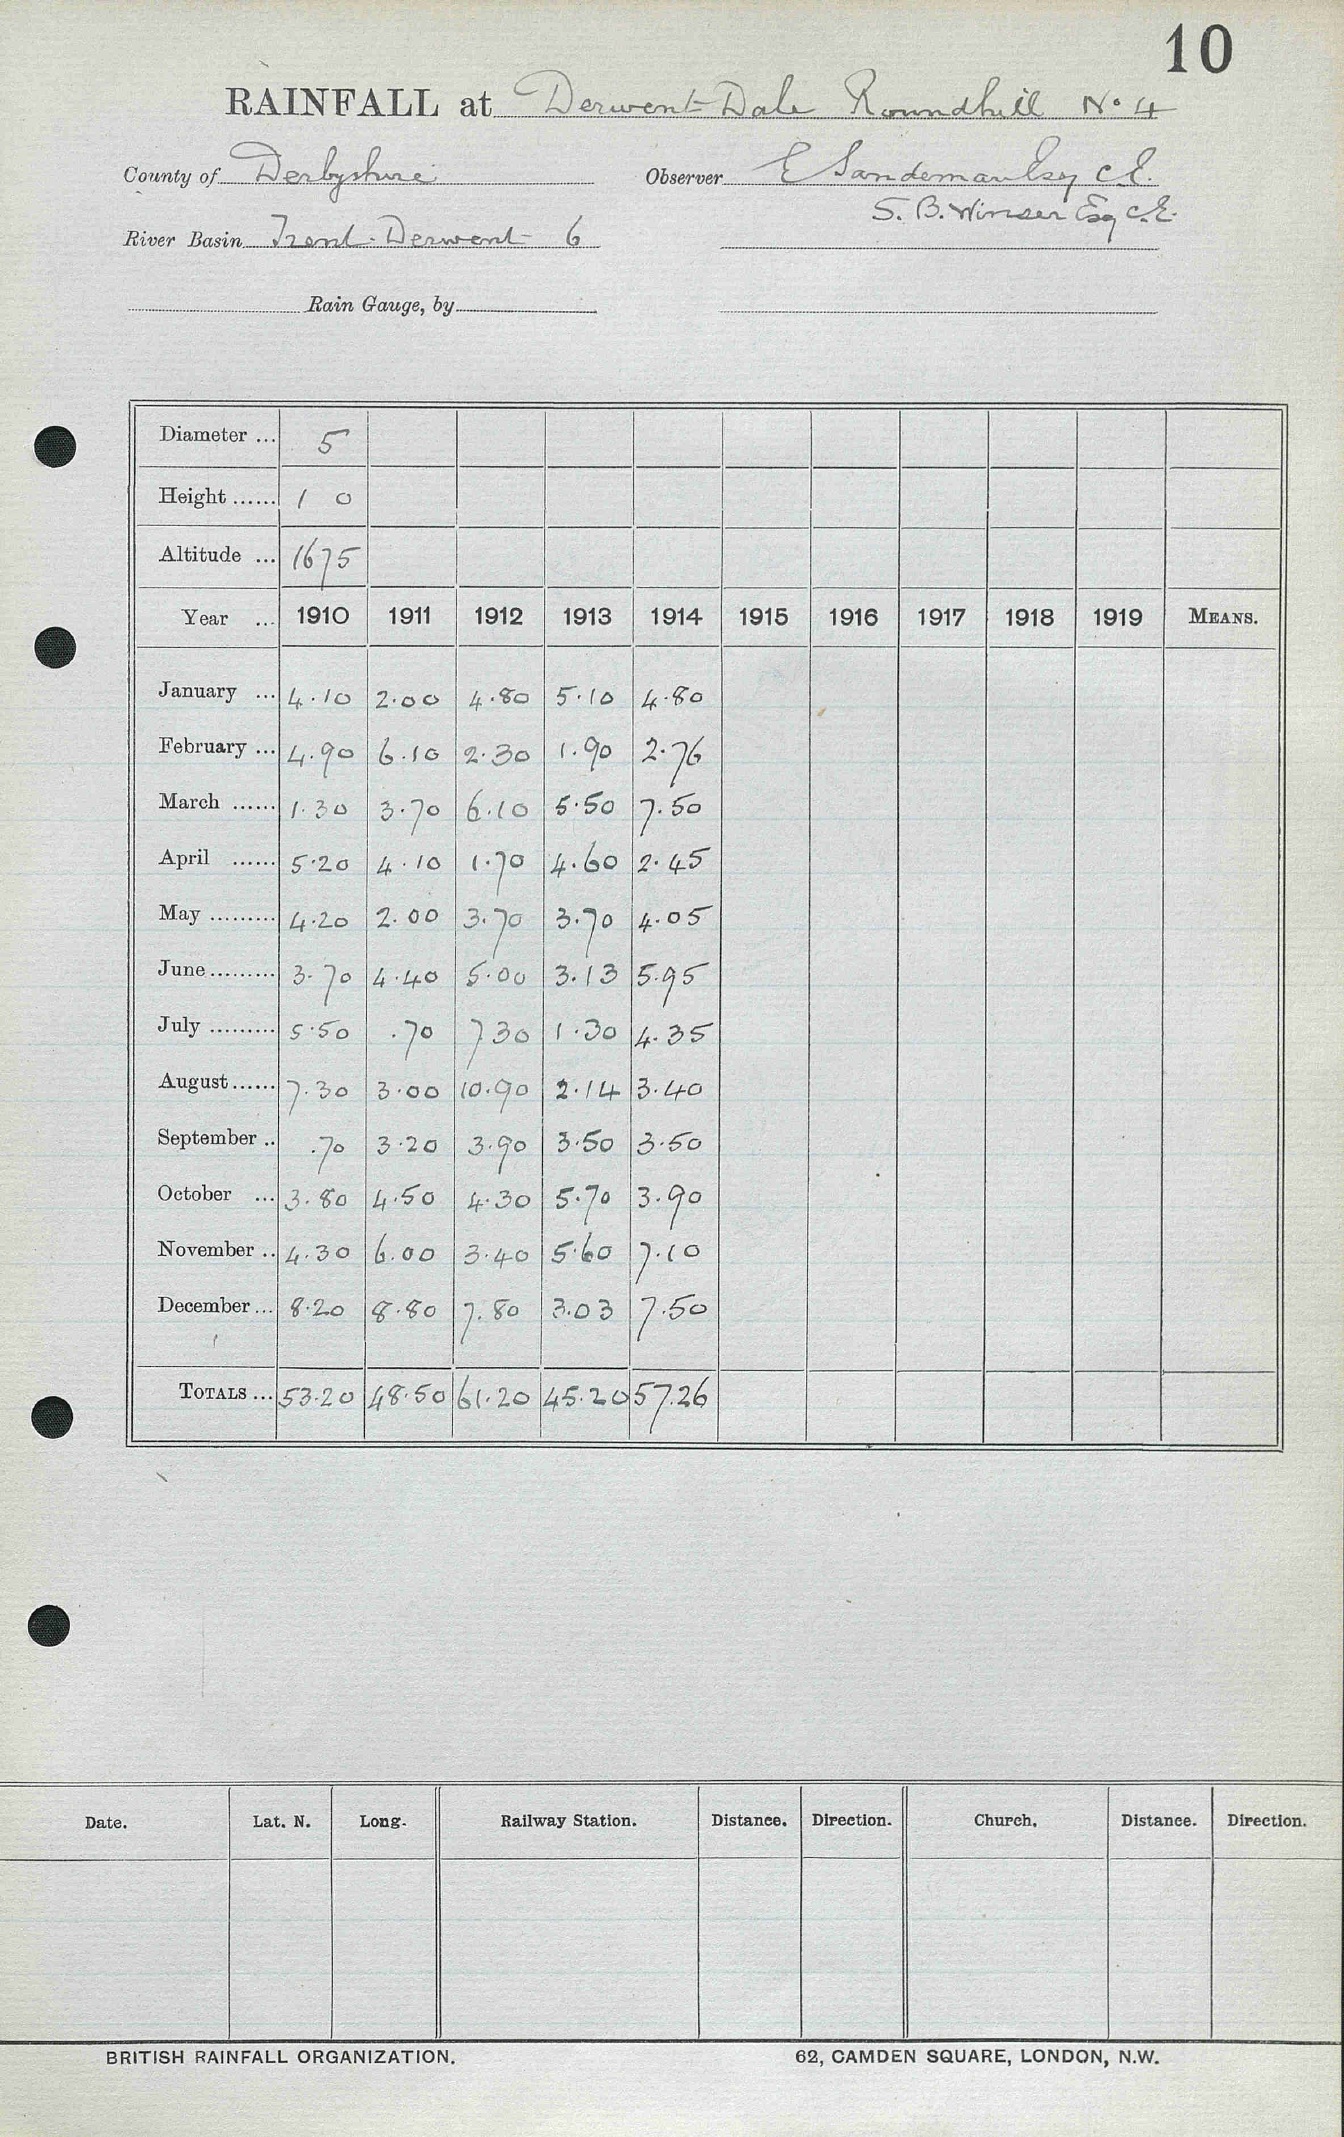 10
RAINFALL at Derwent Dale Roundhill No 4
County of Derbyshire Observer E Sandeman Esq C.E.
S. B. Winser Esq C.E.
River Basin Trent. Derwent 6
Rain Gauge, by
Diameter ... 5
Height ...... 1 0
Altitude ... 1675
Year ... 1910 1911 1912 1913 1914 1915 1916 1917 1918 1919 MEANS.
January ... 4.10 2.00 4.80 5.10 4.80
February ... 4.90 6.10 2.30 1.90 2.76
March ...... 1.30 3.70 6.10 5.50 7.50
April ...... 5.20 4.10 1.70 4.60 2.45
May ......... 4.20 2.00 3.70 3.70 4.05
June ......... 3.70 4.40 5.00 3.13 5.95
July ......... 5.50 .70 7.30 1.30 4.35
August ...... 7.30 3.00 10.90 2.14 3.40
September .. .70 3.20 3.90 3.50 3.50
October ... 3.80 4.50 4.30 5.70 3.90
November .. 4.30 6.00 3.40 5.60 7.10
December ... 8.20 8.80 7.80 3.03 7.50
TOTALS ... 53.20 48.50 61.20 45.20 57.26
Date. Lat. N. Long. Railway Station. Distance. Direction. Church. Distance. Direction.
BRITISH RAINFALL ORGANIZATION. 62, CAMDEN SQUARE, LONDON, N.W.